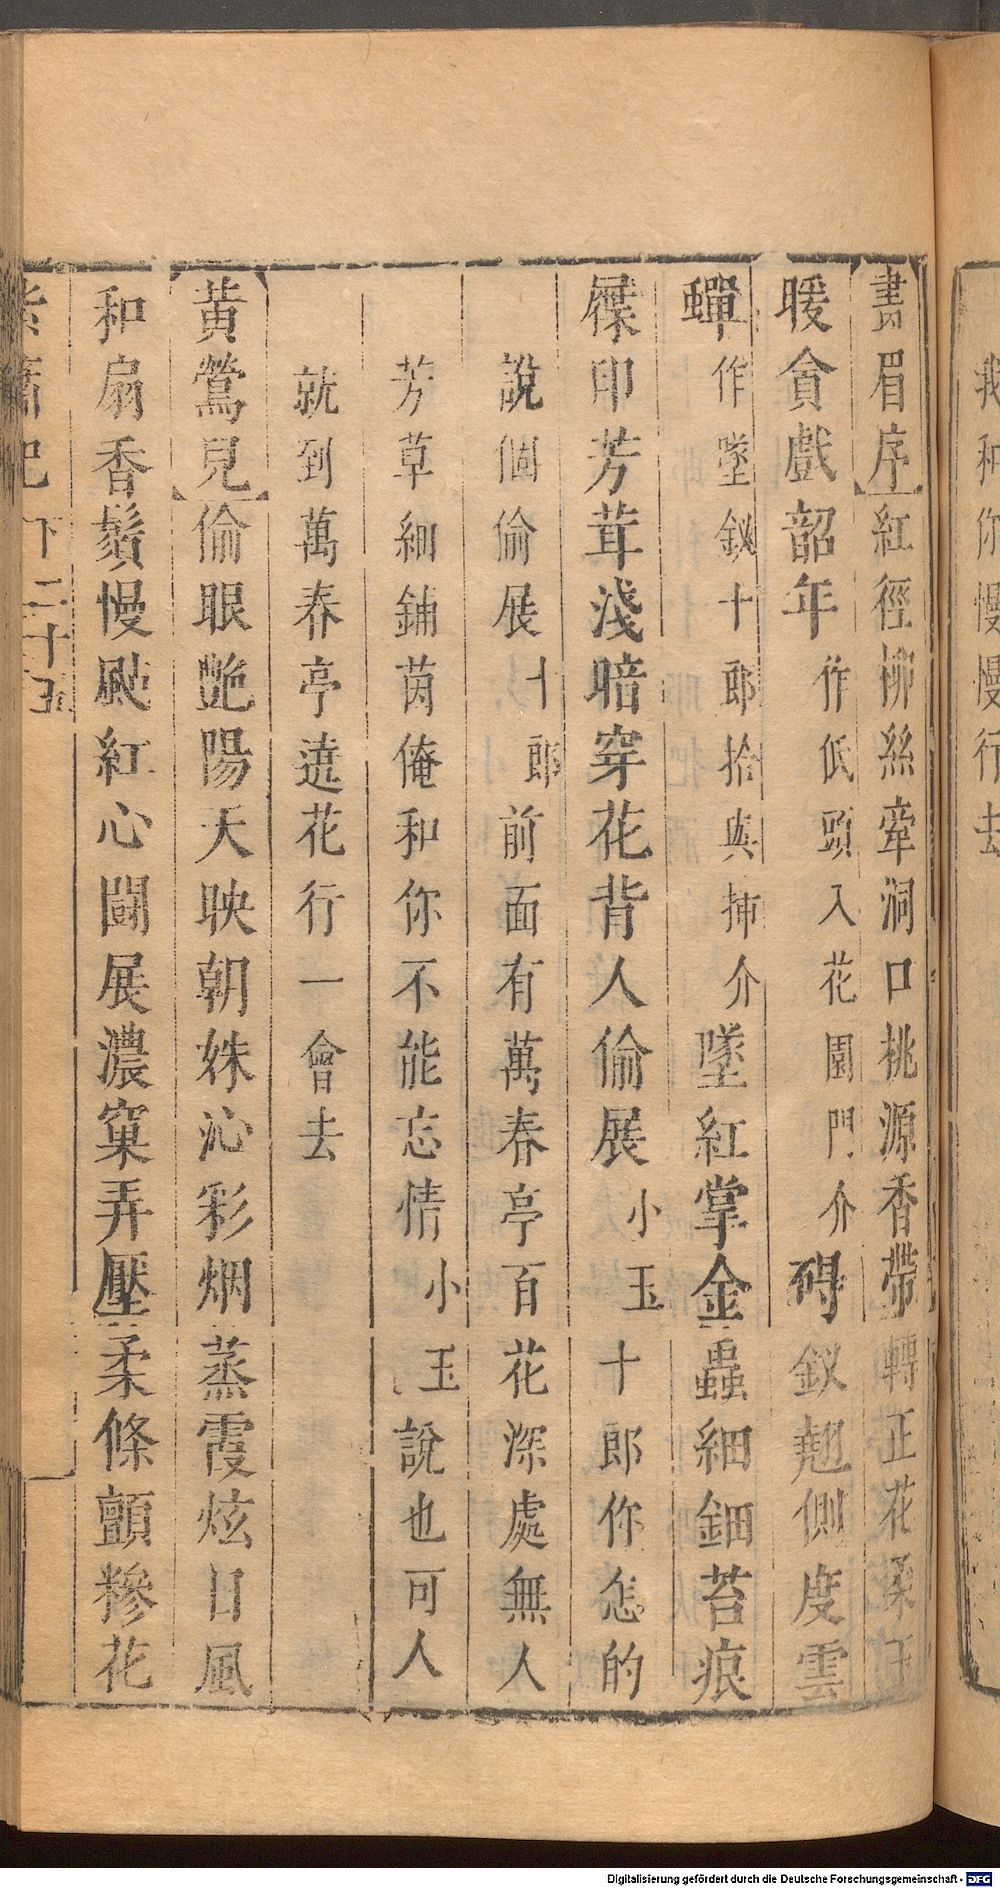 我和你慢慢行去
【畫眉序】紅徑柳絲牽洞口桃源香帶轉正花柔玉
暖貪戲韶年作低頭入花園門介碍釵翹側度雲
蟬作墜釵十郎拾與揷介墜紅掌金蟲細鈿苔痕
屧印芳茸淺暗穿花背人偷展小玉十郎你怎的
說個偷展十郎前面有萬春亭百花深處無人
芳草細鋪茵俺和你不能忘情小玉說也可人
就到萬春亭遶花行一會去
【黃鶯兒】偷眼艷陽天映朝姝沁彩烟蒸霞炫日風
和扇香鬚慢颭紅心鬪展濃窠弄壓柔條顫糝花
紫簫記 下 二十五
Digitalisierung gefördert durch die Deutsche Forschungsgemeinschaft - DFG